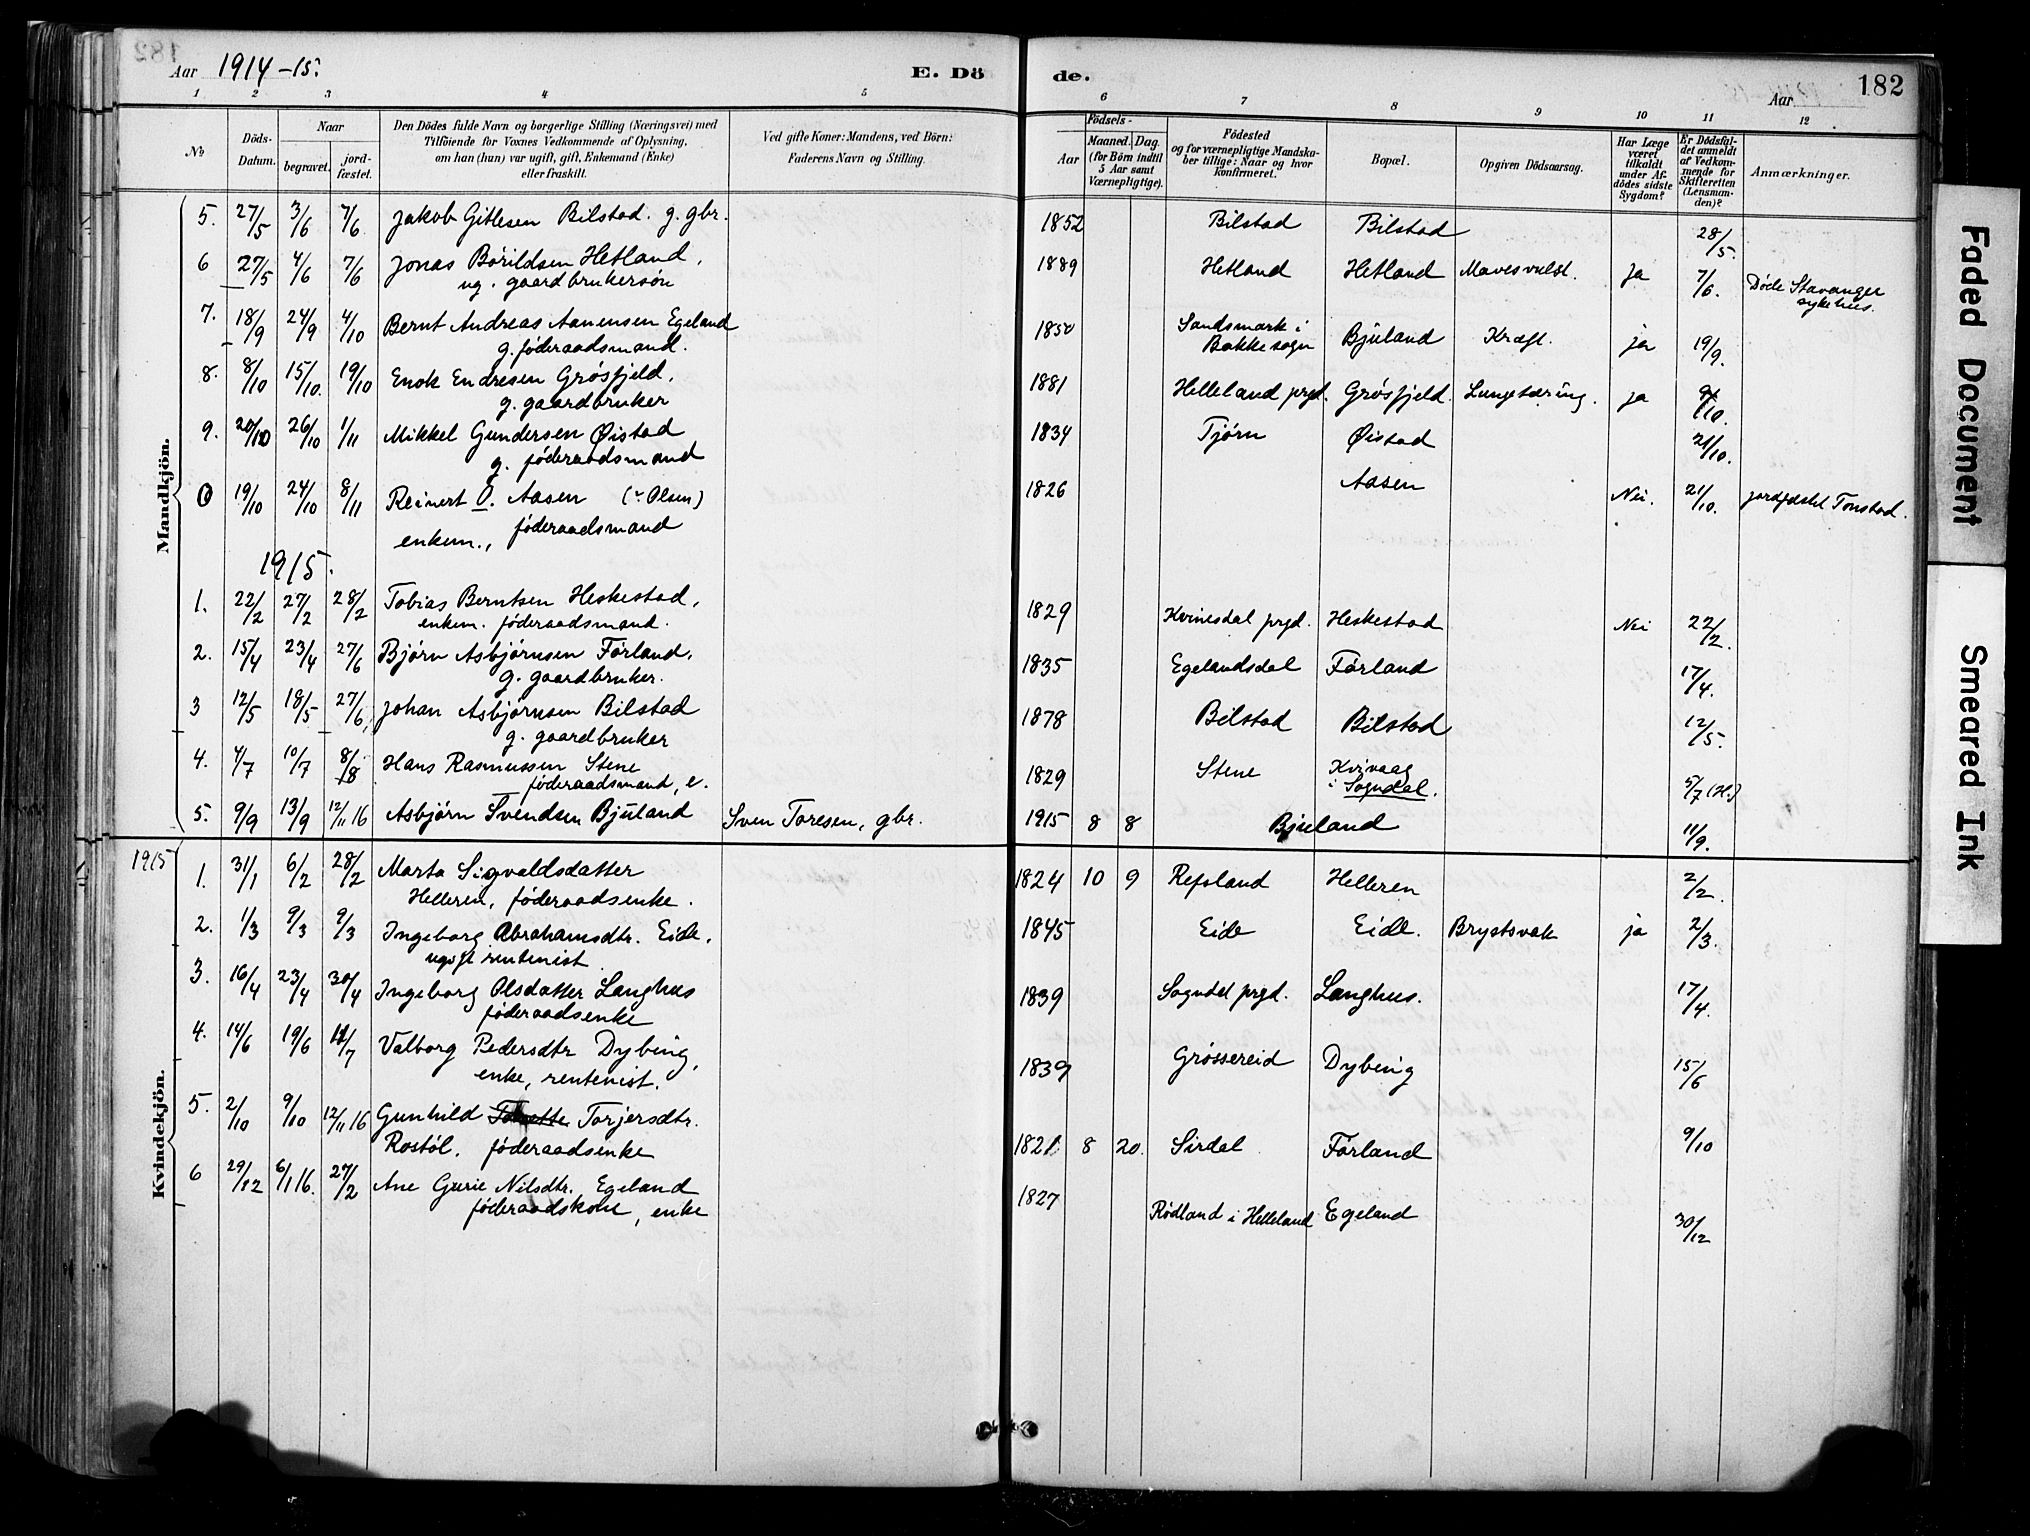 Aar 1914-15.
E. Dö de.
Aar 182
1 2 3 4 5 6 7 8 9 10 11 12
No
Döds-Datum.
Naar begravet. jord-fæstet.
Den Dödes fulde Navn og borgerlige Stilling (Næringsvei) med
Tilföiende for Voxnes Vedkommende af Oplysning,
om han (hun) var ugift, gift, Enkemand (Enke)
eller fraskilt.
Ved gifte Koner: Mandens, ved Börn:
Faderens Navn og Stilling.
Födsels-
Aar Maaned. Dag.
(for Börn indtil
5 Aar samt
Værnepligtige).
Födested
og for værnepligtige Mandska-
ber tillige: Naar og hvor
konfirmeret.
Bopæl.
Opgiven Dödsaarsag.
Har Læge
været
tilkaldt
under Af-
dödes sidste
Sygdom?
Er Dödsfal-
det anmeldt
af Vedkom-
mende for
Skifteretten
(Lensman-
den)?
Anmærkninger.
Mandkjön.
5. 27/5 3/6 7/6 Jakob Gitlesen Bilstad. g. gbr. 1852 Bilstad Bilstad 28/5.
6 27/5 4/6 7/6 Jonas Børildsen Hetland, 1889 Hetland Hetland Mavesvulst. Ja 7/6. Døde Stavanger
ug. gaardbrukersøn sykehus.
7. 18/9 24/9 4/10 Bernt Andreas Aanensen Egeland 1850 Sandsmark i Bjuland Kræft. ja 19/9.
g. føderaadsmand. Bakke sogn
8. 8/10 15/10. 19/10 Enok Endresen Grøsfjeld, 1881 Helleland prgd. Grøsfjeld. Lungetæring. ja 9/10.
g. gaardbruker
9. 20/10 26/10 1/11 Mikkel Gundersen Øistad 1834 Tjørn Øistad 21/10.
g. føderaadsmand
19/10 24/10 8/11 Reinert O. Aasen (: Olsen) 1826 Aasen Nei. 21/10. jordfæstet Tonstad.
enkem., føderaadsmand
1915.
1. 22/2 27/2 28/2 Tobias Berntsen Heskestad, 1829 Kvinesdal prgd. Heskestad Nei 22/2.
enkem. føderaadsmand.
2. 15/4 23/4 27/6 Bjørn Asbjørnsen Førland, 1835 Egelandsdal Førland 17/4.
g. gaardbruker.
3 12/5 18/5 27/6, Johan Asbjørnsen Bilstad 1878 Bilstad Bilstad 12/5.
g. gaardbruker
4. 4/7 10/7 8/8 Hans Rasmussen Stene 1829 Stene Kvivaag 5/7 (H.)
føderaadsmand, e. i Sogndal.
5. 9/9 13/9 12/11 16 Asbjørn Svendsen Bjuland Sven Toresen, gbr. 1915 8 8 Bjuland 11/9.
Kvindekjön.
1915
1. 31/1 6/2 28/2 Marta Sigvaldsdatter 1824 10 9 Refsland Helleren 2/2.
Helleren, føderaadsenke.
2. 1/3 9/3 9/3 Ingeborg Abrahamsdtr. Eide, 1845 Eide Eide. Brystsvak ja 2/3.
ugift rentenist
3. 16/4 23/4 30/4 Ingeborg Olsdatter Langhus 1839 Sogndal prgd. Langhus. 17/4.
føderaadsenke
4. 14/6 19/6 11/7 Valborg Pedersdtr Dybing, 1839 Grøssereid Dybing 15/6
enke, rentenist.
5. 2/10 9/10 12/11 16 Gunhild Torjersdtr. 1821 8 20. Sirdal Førland 9/10
Rostøl, føderaadsenke
6 29/12 6/1 16. 27/2 Ane Gurie Nilsdtr. Egeland 1827 Rødland i Helleland Egeland 30/12
føderaadskone, enke
Faded Document
Smeared Ink